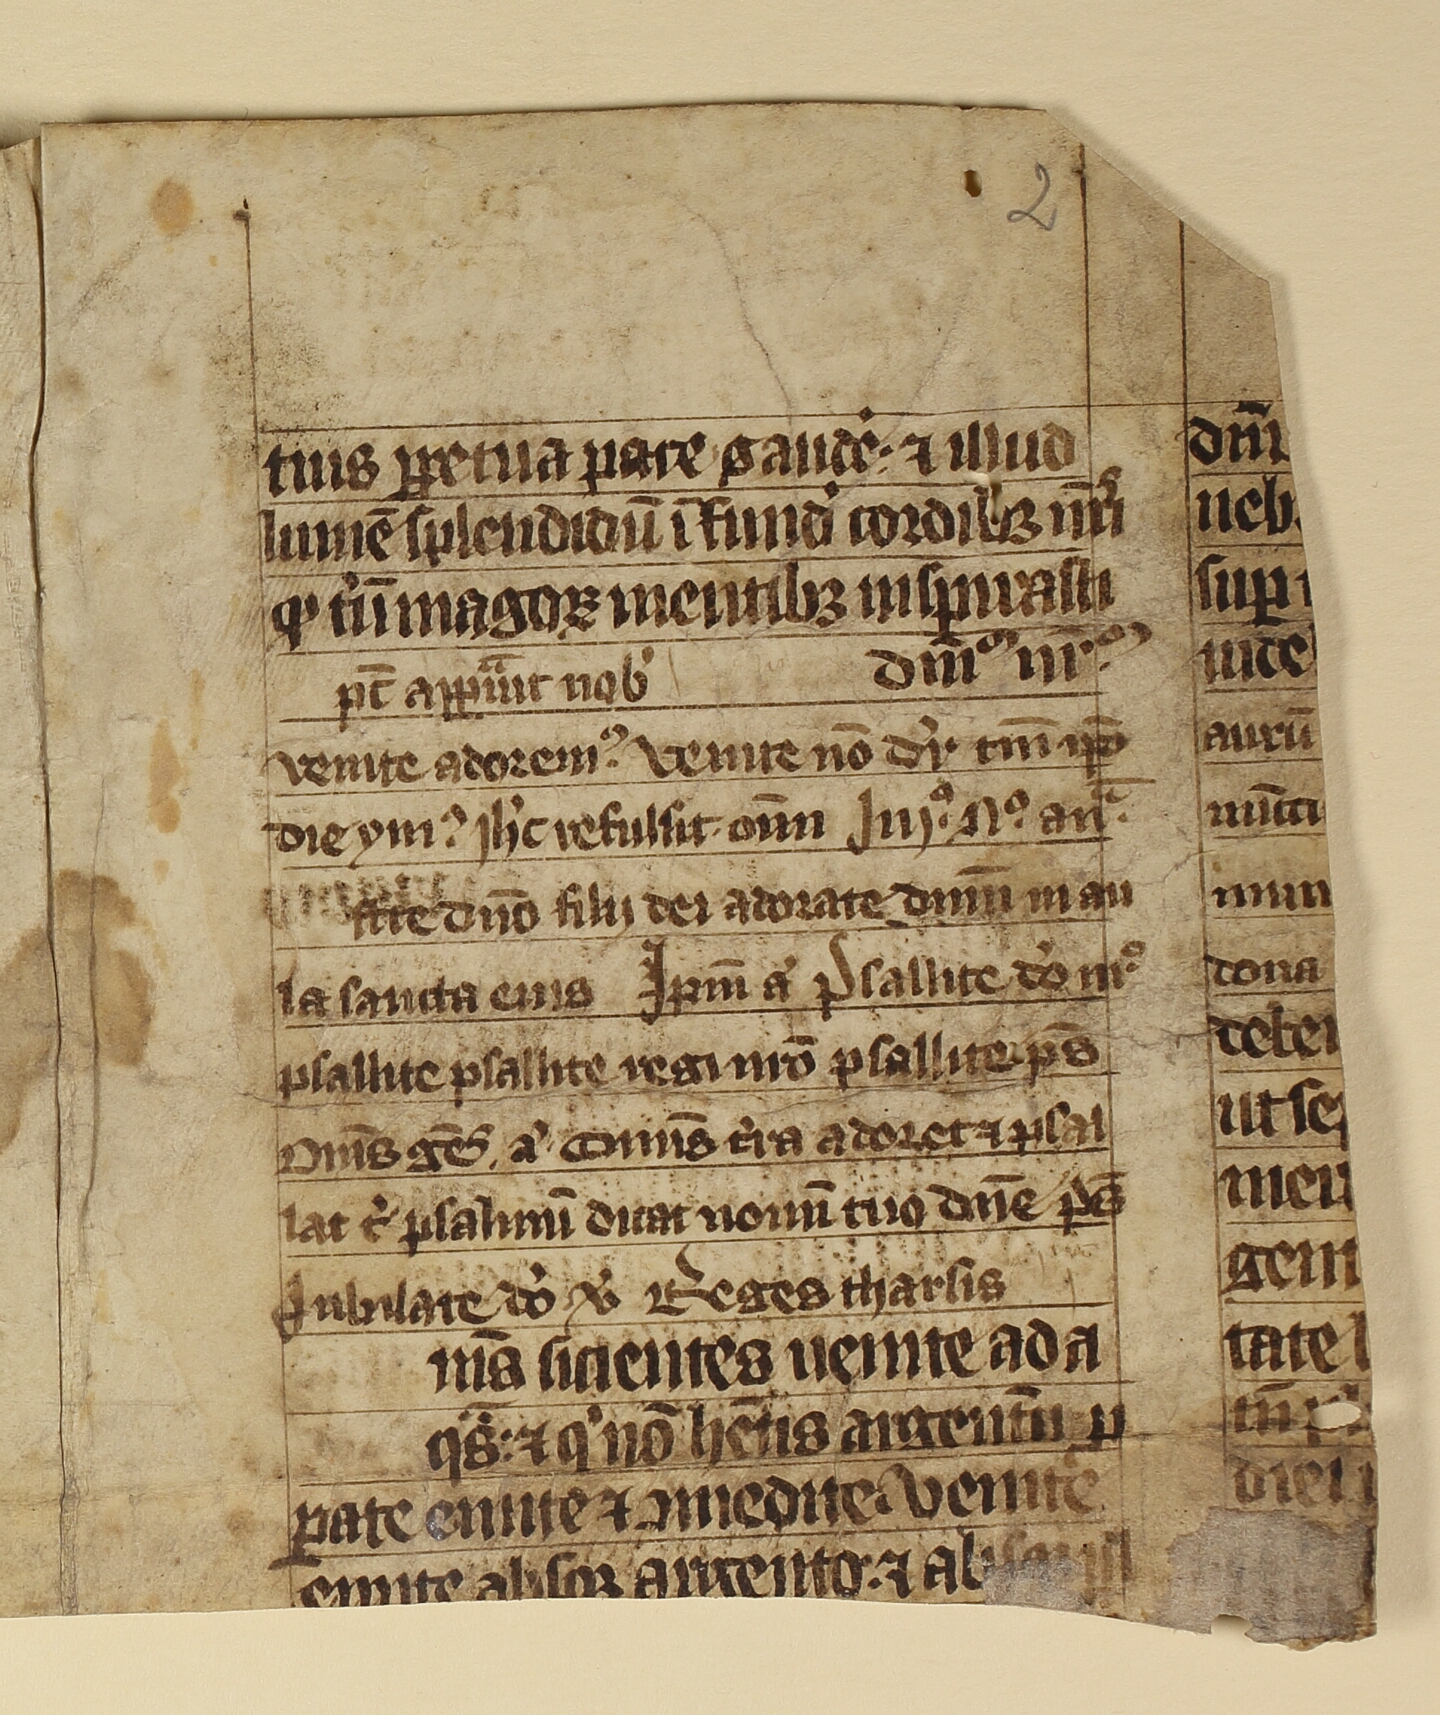 2
tuis ꝑpetua pace gaudē. ⁊ illud
lumē splendidū īfund' cordibꝫ nr̄is
qd' tū magoꝝ mentibꝫ inspirasti
pt̄ apꝑuit nob' dn̄m nr̄m
venite adorem⁹ Venite nō dr̄ tm̄ ip̄o
die ymꝰ Ih'c refulsit om̄n In j⁰ N⁰ an̄
fferte dn̄o filij dei adorate dnm̄ in au
la sancta eius Ip̄m a' Psallite d'o nr̄o
psallite psallite regi nr̄o psallite ps̄
Om̄s gē͞s a' Omnis t'ra adoret ⁊ psal
lat t' psalmū dicat nomī tuo dn̄e ps̄
Iubilate d'o v' Reges tharsis
mn̄s sicientes uenite ad a
q̄s: ⁊ q' nō hētis argentū ꝓ
ꝑate emite ⁊ comedite. Venite
emite absqꝫ argento: ⁊ abs
dn̄i
neb
suꝑ
uide
aurū
mun
dona
debe
ut se
men
gem
tate
diei